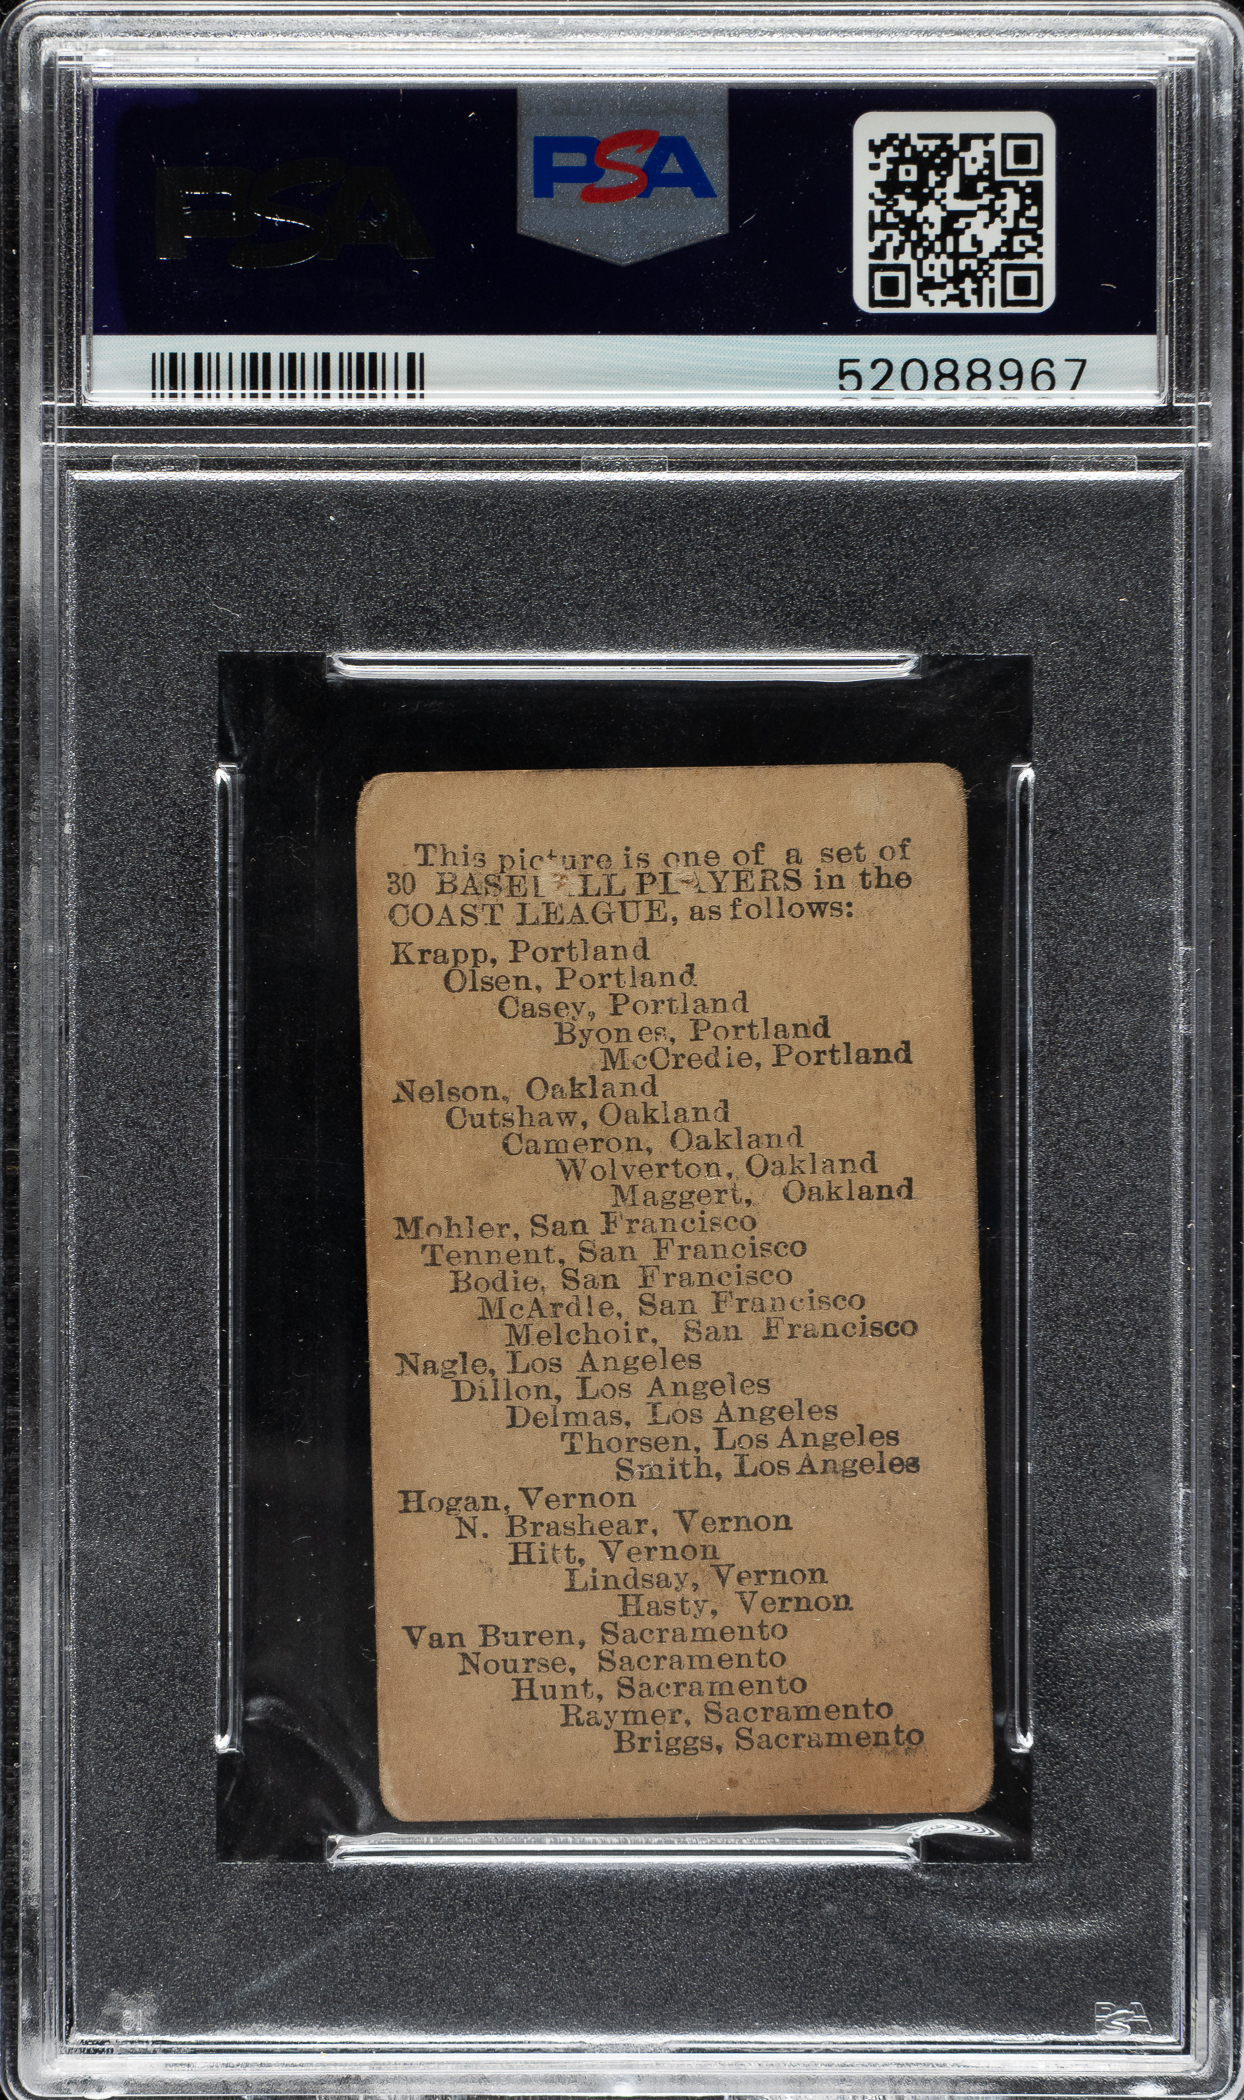 PSA
PSA
52088967
This picture is one of a set of
30 BASEBALL PLAYERS in the
COAST LEAGUE, as follows:
Krapp, Portland
Olsen, Portland
Casey, Portland
Byones, Portland
McCredie, Portland
Nelson, Oakland
Cutshaw, Oakland
Cameron, Oakland
Wolverton, Oakland
Maggert, Oakland
Mohler, San Francisco
Tennent, San Francisco
Bodie, San Francisco
McArdle, San Francisco
Melchoir, San Francisco
Nagle, Los Angeles
Dillon, Los Angeles
Delmas, Los Angeles
Thorsen, Los Angeles
Smith, Los Angeles
Hogan, Vernon
N. Brashear, Vernon
Hitt, Vernon
Lindsay, Vernon
Hasty, Vernon
Van Buren, Sacramento
Nourse, Sacramento
Hunt, Sacramento
Raymer, Sacramento
Briggs, Sacramento
PSA